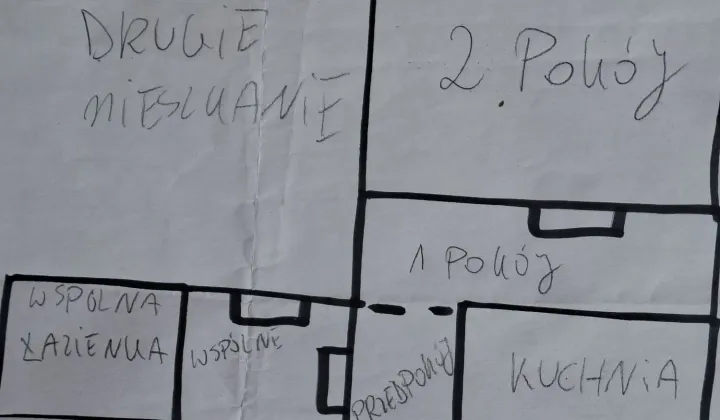 DRUGIE
MIESZKANIE
2. Pokój
1 Pokój
WSPOLNA
ŁAZIENKA
WSPÓLNE
PRZEDPOKÓJ
KUCHNIA